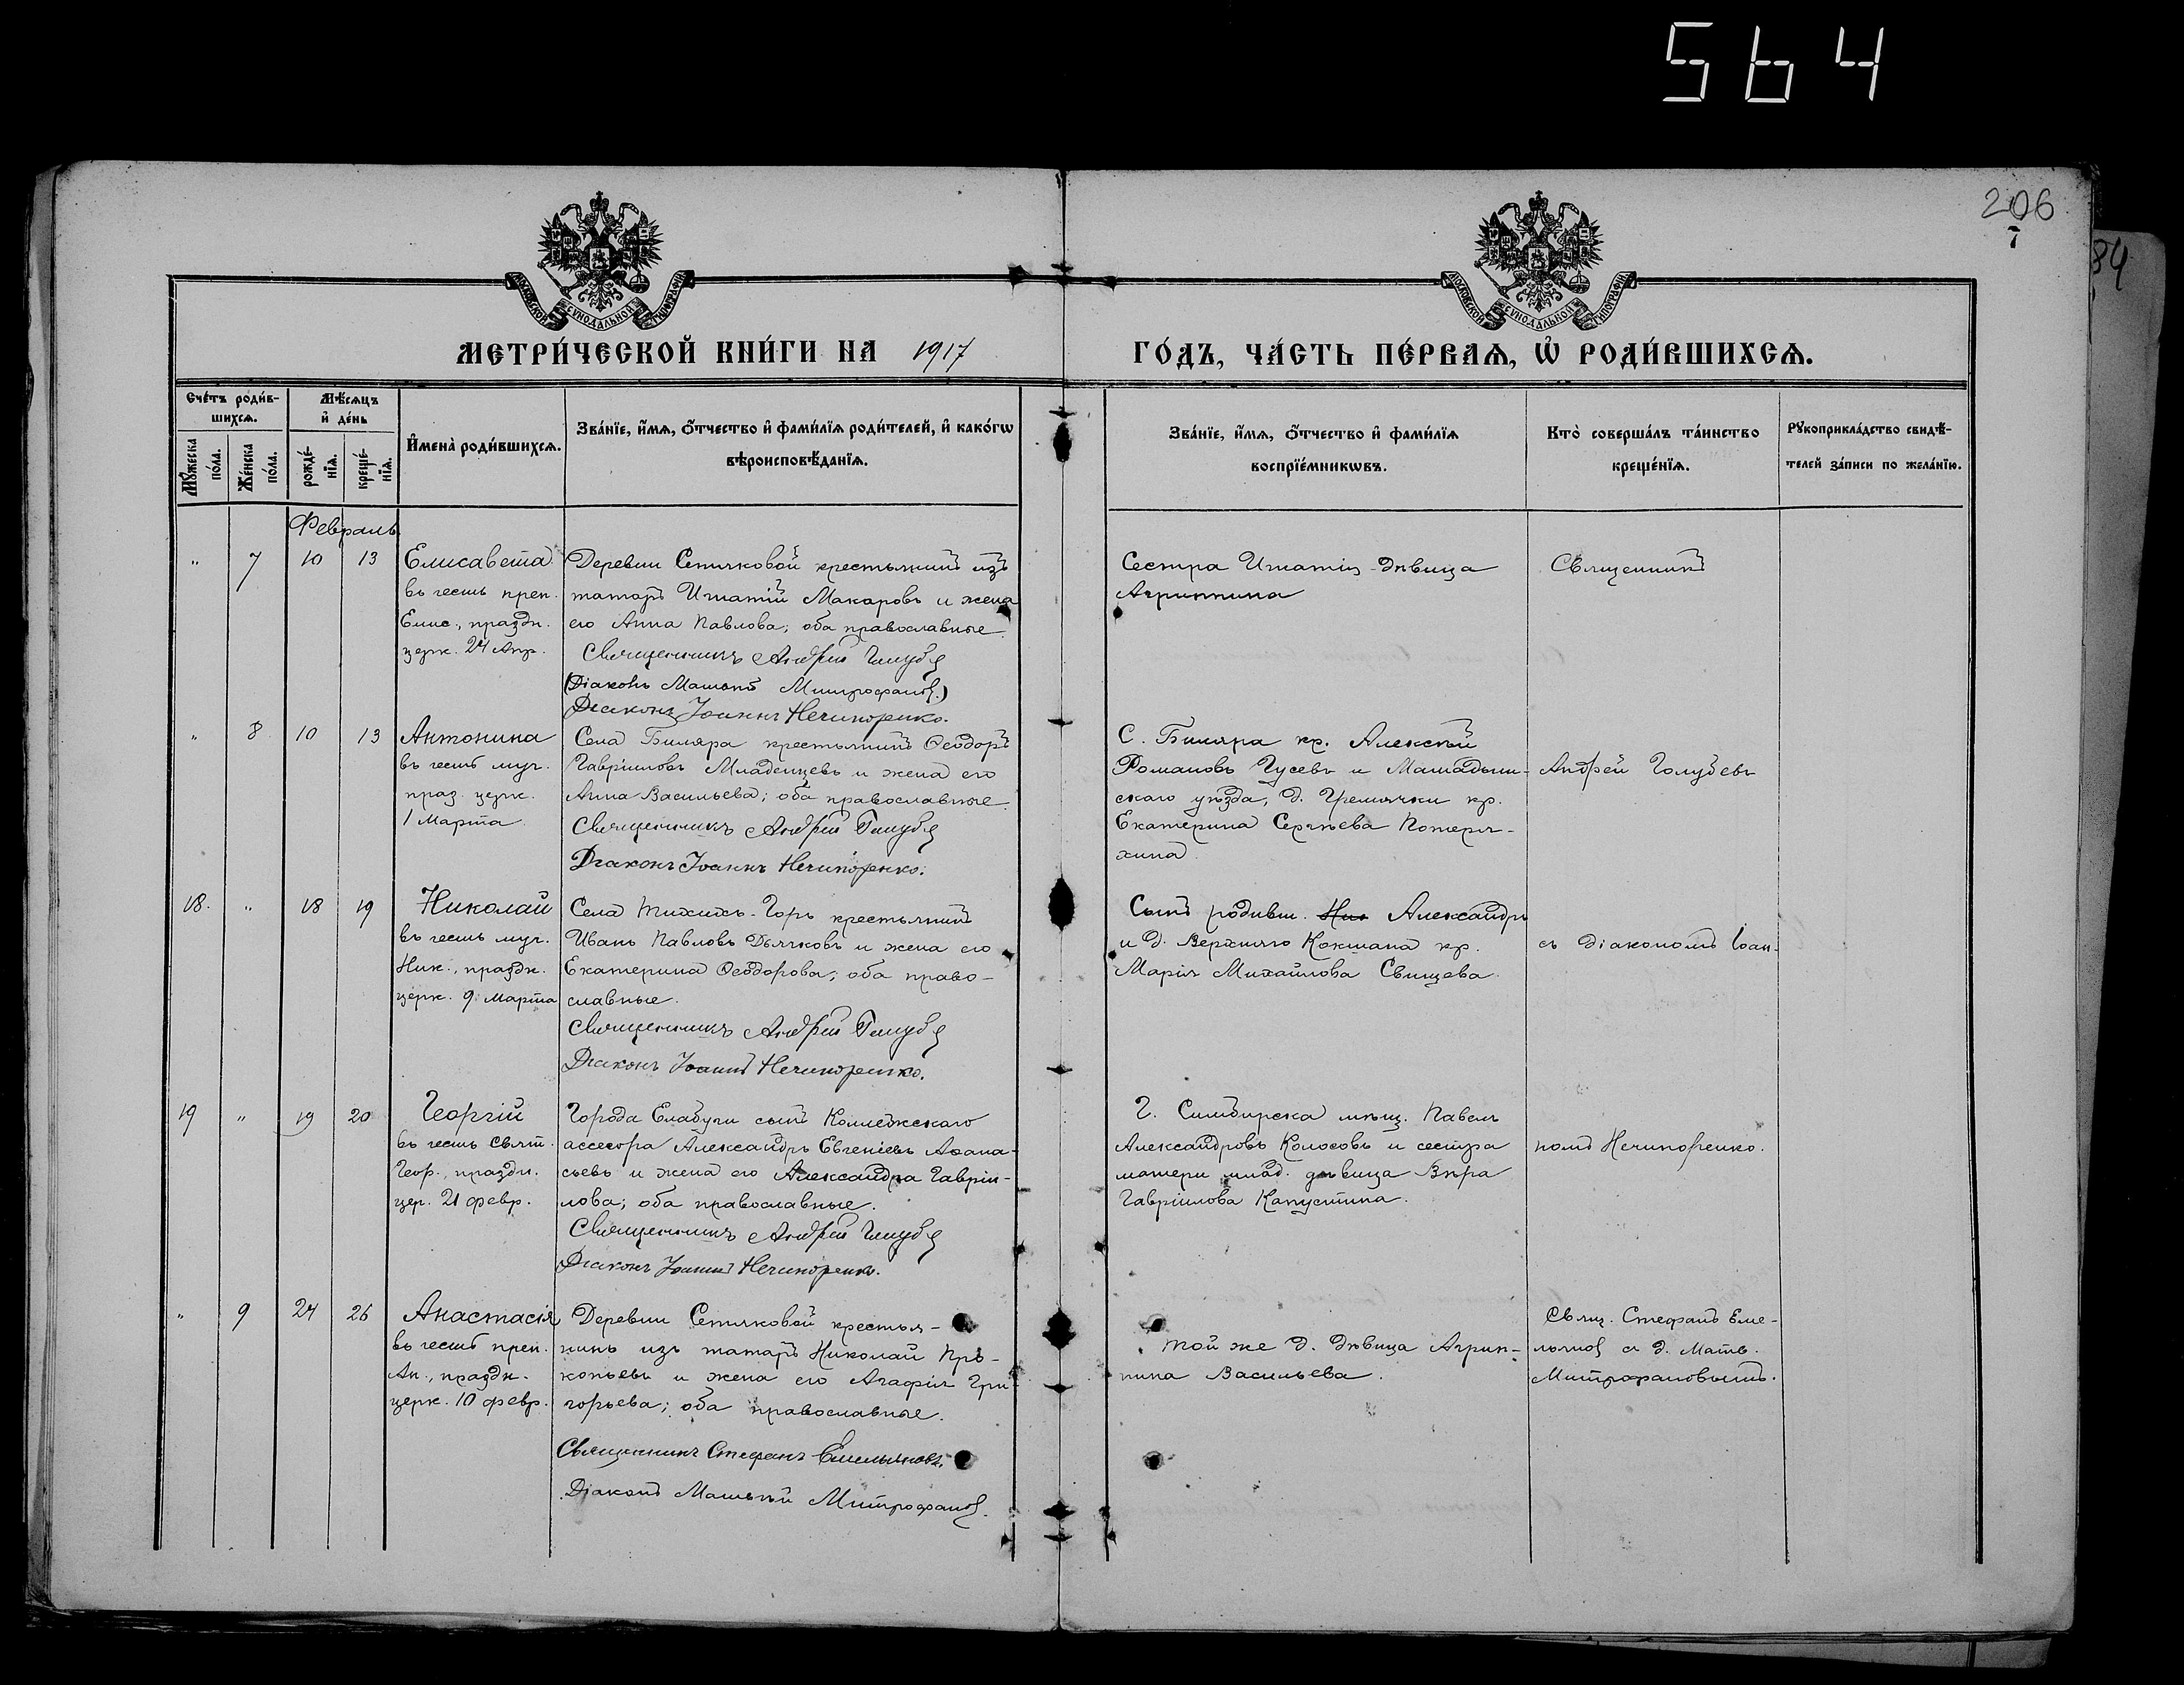 564
206
7
84
МОСКОВСКОЙ СѴНОДАЛЬНОЙ ТИПОГРАФІИ
МОСКОВСКОЙ СѴНОДАЛЬНОЙ ТИПОГРАФІИ
МЕТРИ́ЧЕСКОЙ КНИ́ГИ НА 1917
ГО́ДЪ, ЧА́СТЬ ПЕ́РВАѦ, Ѡ҆ РОДИ́ВШИХСѦ.
Сче́тъ роди́в-
шихсѧ.
Мꙋ́жеска
по́ла.
Же́нска
по́ла.
Мѣ́сѧцъ
и҆ де́нь
рожде́-
нїѧ.
креще́-
нїѧ.
И҆мена̀ роди́вшихсѧ.
Зва́нїе, и҆́мѧ, ѻ҆́тчество и҆ фами́лїѧ роди́телей, и҆ како́гѡ
вѣроисповѣ́данїѧ.
Зва́нїе, и҆́мѧ, ѻ҆́тчество и҆ фами́лїѧ
воспрїе́мникѡвъ.
Кто̀ соверша́лъ та́инство
креще́нїѧ.
Рꙋкоприкла́дство свидѣ́-
телей за́писи по жела́нїю.
Февраль
" 7 10 13
Елисавета
въ честь преп.
Елис., праздн.
церк. 24 Апр.
Деревни Сетяковой крестьянинъ изъ
татаръ Игнатій Макаровъ и жена
его Анна Павлова; оба православные.
Священникъ Андрей
(Діаконъ Матвѣй Митрофановъ.)
Діаконъ Іоаннъ Нечипоренко.
Сестра Игнатія дѣвица
Агриппина
Священникъ
" 8 10 13
Антонина
въ честь муч.
праз. церк.
1 Марта
Села Биляра крестьянинъ Ѳеодоръ
Гавріиловъ Младенцевъ и жена его
Анна Васильева; оба православные.
Священникъ Андрей
Діаконъ Іоаннъ Нечипоренко.
С. Биляра кр. Алексѣй
Романовъ Гусевъ и Мамадыш-
скаго уѣзда, д. Гремячки кр.
Екатерина Сергѣева Потеря-
хина.
Андрей Голубевъ
18. " 18 19
Николай
въ честь муч.
Ник., праздн.
церк. 9 Марта
Села Тихихъ-Горъ крестьянинъ
Иванъ Павловъ Дьячковъ и жена его
Екатерина Ѳеодорова; оба право-
славные.
Священникъ Андрей
Діаконъ Іоаннъ Нечипоренко.
Сынъ родивш. Ник Александръ
и д. Верхняго Кокшана кр.
Марія Михайлова Свищева
съ діакономъ Іоан-
19 " 19 20
Георгій
въ честь свят.
Геор., праздн.
цер. 21 февр.
Города Елабуги сынъ Коллежскаго
ассесора Александръ Евгеніевъ Аѳана-
сьевъ и жена его Александра Гавріи-
лова; оба православные.
Священникъ Андрей
Діаконъ Іоаннъ Нечипоренко.
Г. Симбирска мѣщ. Павелъ
Александровъ Колосовъ и сестра
матери млад. дѣвица Вѣра
Гавріилова Капустина.
номъ Нечипоренко.
" 9 24 26
Анастасія
въ честь преп.
Ан., праздн.
церк. 10 февр.
Деревни Сетяковой крестья-
нинъ изъ татаръ Николай Про-
копьевъ и жена его Агафія Гри-
горьева; оба православные.
Священникъ Стефанъ Емельяновъ.
Діаконъ Матвѣй Митрофановъ.
Той же д. дѣвица Агрип-
пина Васильева.
Свящ. Стефанъ Еме-
льяновъ съ д. Матв.
Митрофановымъ.